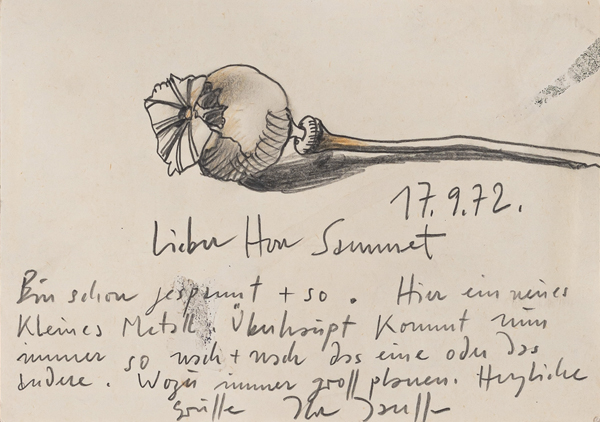 17.9.72.
Lieber Herr Sammet
Bin schon gespannt + so. Hier ein neues
Kleines Metall. Überhaupt kommt nun
immer so nach + nach das eine oder das
andere. Wozu immer groß planen. Herzliche
Grüsse Ihr Janssen